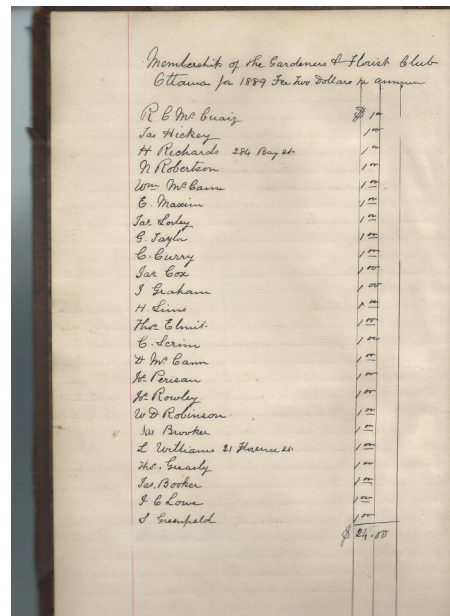 Membership of the Gardeners & Florist Club
Ottawa for 1889 Fee Two Dollars per annum
R C McCuaig $ 1 00
Jas Hickey 1 00
H Richards 284 Bay St 1 00
N Robertson 1 00
Wm McCann 1 00
E. Maxim 1 00
Jas. Sorley 1 00
G. Taylor 1 00
C. Curry 1 00
Jas Cox 1 00
J Graham 1 00
H. Sims 1 00
Thos 1 00
C. Scrim 1 00
D McCann 1 00
Jos 1 00
Jos Rowley 1 00
W D Robinson 1 00
Brooker 1 00
L Williams 21 Florence St 1 00
Thos. 1 00
Jas. Booker 1 00
J C Lowe 1 00
S Greenfield 1 00
$ 24.00